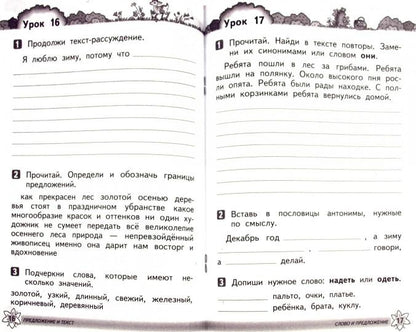 Урок 16
1 Продолжи текст-рассуждение.
Я люблю зиму, потому что
2 Прочитай. Определи и обозначь границы
предложений.
как прекрасен лес золотой осенью дере-
вья стоят в праздничном убранстве какое
многообразие красок и оттенков ни один ху-
дожник не сумеет передать всё великолепие
осеннего леса природа — непревзойдённый
живописец именно она дарит нам восторг и
вдохновение
3 Подчеркни слова, которые имеют не-
сколько значений.
золотой, узкий, длинный, свежий, железный,
коричневый, деревянный
16 ПРЕДЛОЖЕНИЕ И ТЕКСТ
Урок 17
1 Прочитай. Найди в тексте повторы. Заме-
ни их синонимами или словом они.
Ребята пошли в лес за грибами. Ребята
вышли на полянку. Около высокого пня рос-
ли опята. Ребята были рады находке. С пол-
ными корзинками ребята вернулись домой.
2 Вставь в пословицы антонимы, нужные
по смыслу.
Декабрь год , а зиму
. говори,
а делай.
3 Допиши нужное слово: надеть или одеть.
пальто, очки, платье.
ребёнка, брата, куклу.
СЛОВО И ПРЕДЛОЖЕНИЕ 17